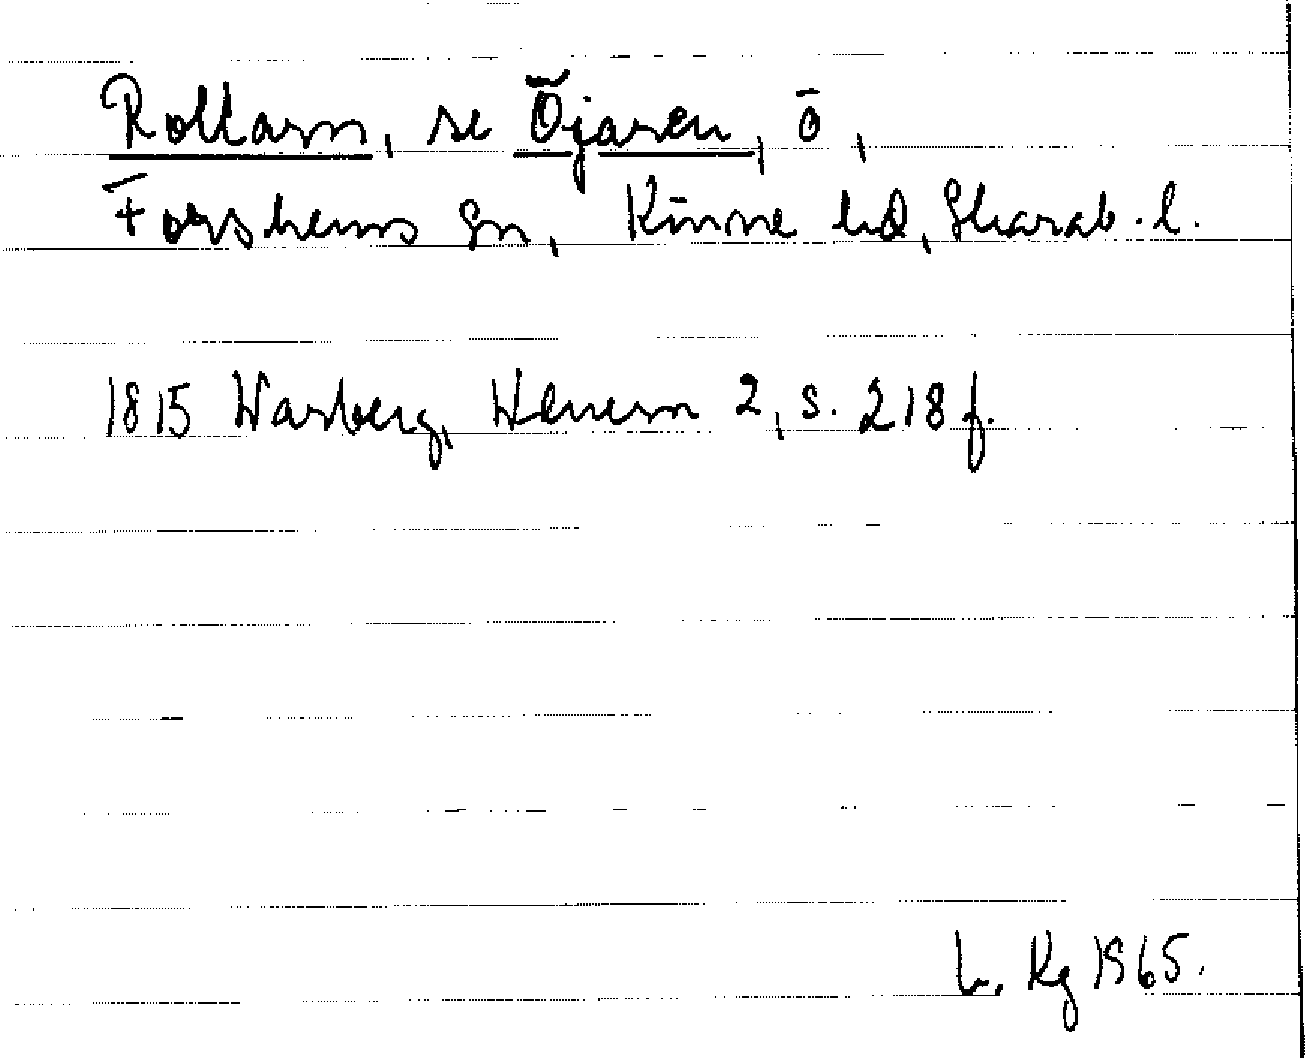 Rollarn, se Öjaren, ö,
Forshems sn, Kinne hd, Skarab. l.
1815 Warberg, Wenern 2, s. 218 f.
L. Kg 1965.